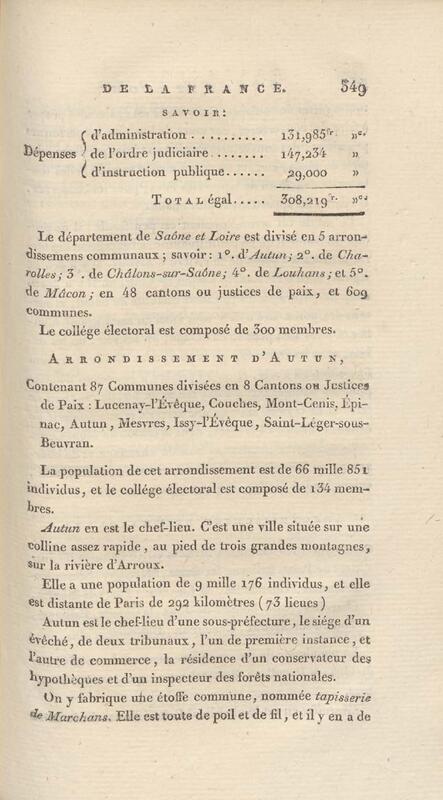 DE LA FRANCE. 349
SAVOIR:
d'administration . . . . . . . . . . 131,985fr. »c.
Dépenses de l'ordre judiciaire . . . . . . . . 147,234 »
d'instruction publique . . . . . . 29,000 »
TOTAL égal . . . . . 308,219fr. »c.
Le département de Saône et Loire est divisé en 5 arron-
dissemens communaux ; savoir : 1°. d'Autun ; 2°. de Cha-
rolles ; 3 . de Châlons-sur-Saône ; 4°. de Louhans ; et 5°.
de Mâcon ; en 48 cantons ou justices de paix, et 609
communes.
Le collége électoral est composé de 300 membres.
ARRONDISSEMENT D'AUTUN,
Contenant 87 Communes divisées en 8 Cantons ou Justices
de Paix : Lucenay-l'Évêque, Couches, Mont-Cenis, Épi-
nac, Autun, Mesvres, Issy-l'Évêque, Saint-Léger-sous-
Beuvran.
La population de cet arrondissement est de 66 mille 851
individus, et le collége électoral est composé de 134 mem-
bres.
Autun en est le chef-lieu. C'est une ville située sur une
colline assez rapide, au pied de trois grandes montagnes,
sur la rivière d'Arroux.
Elle a une population de 9 mille 176 individus, et elle
est distante de Paris de 292 kilomètres ( 73 lieues )
Autun est le chef-lieu d'une sous-préfecture, le siége d'un
évêché, de deux tribunaux, l'un de première instance, et
l'autre de commerce, la résidence d'un conservateur des
hypothèques et d'un inspecteur des forêts nationales.
On y fabrique une étoffe commune, nommée tapisserie
de Marchans. Elle est toute de poil et de fil, et il y en a de